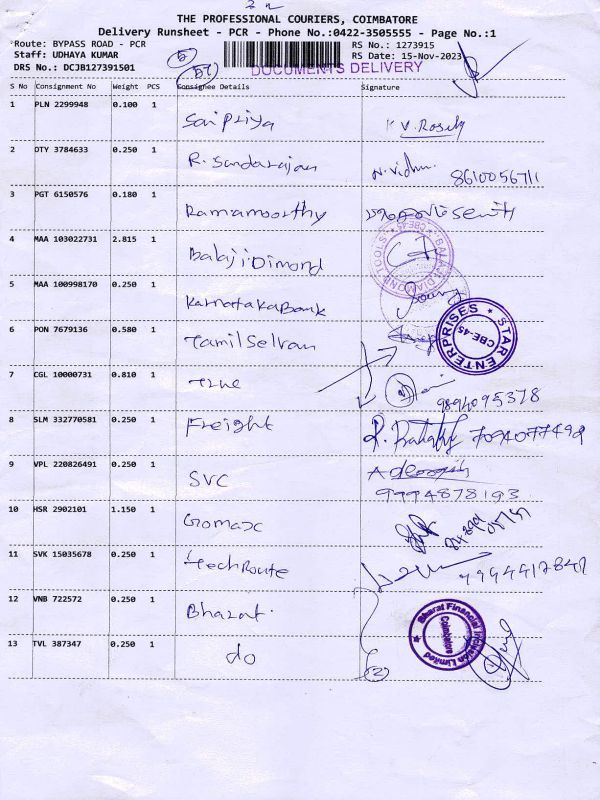 THE PROFESSIONAL COURIERS, COIMBATORE
Delivery Runsheet - PCR - Phone No.:0422-3505555 - Page No.:1
Route: BYPASS ROAD - PCR
RS No.: 1273915
Staff: UDHAYA KUMAR
RS Date: 15-Nov-2023
DRS No.: DCJB127391501
DOCUMENTS DELIVERY
S No Consignment No Weight PCS Consignee Details Signature
1 PLN 2299948 0.100 1 Sai Priya K V. Rosely
2 DTY 3784633 0.250 1 R. Sundararajan N. Vidhu. 8610056711
3 PGT 6150576 0.180 1 Ramamoorthy
4 MAA 103022731 2.815 1 Balaji Dimond
BALAJI DIAMOND TOOLS CBE-45
5 MAA 100998170 0.250 1 Karnataka Bank
6 PON 7679136 0.580 1 Tamil Selvan
STAR ENTERPRISES CBE-45
7 CGL 10000731 0.810 1 9894095378
8 SLM 332770581 0.250 1 Freight 7094077498
9 VPL 220826491 0.250 1 SVC
9994878193
10 HSR 2902101 1.150 1 Gomax
11 SVK 15035678 0.250 1 TechRoute
12 VNB 722572 0.250 1 Bharat.
Bharat Financial Inclusion Limited
Coimbatore
13 TVL 387347 0.250 1 do
(2)